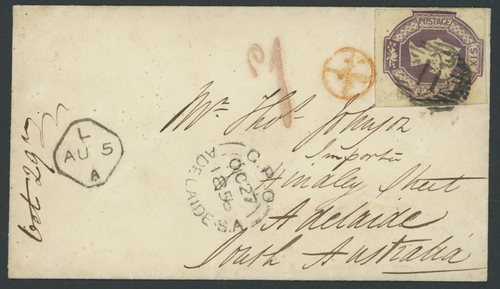 POSTAGE
SIX
Mr Thos Johnson
Importer
Hindley Street
Adelaide
South Australia
L
AU 5
A
G.P.O
OC 27
1856
ADELAIDE. S.A
Oct 29